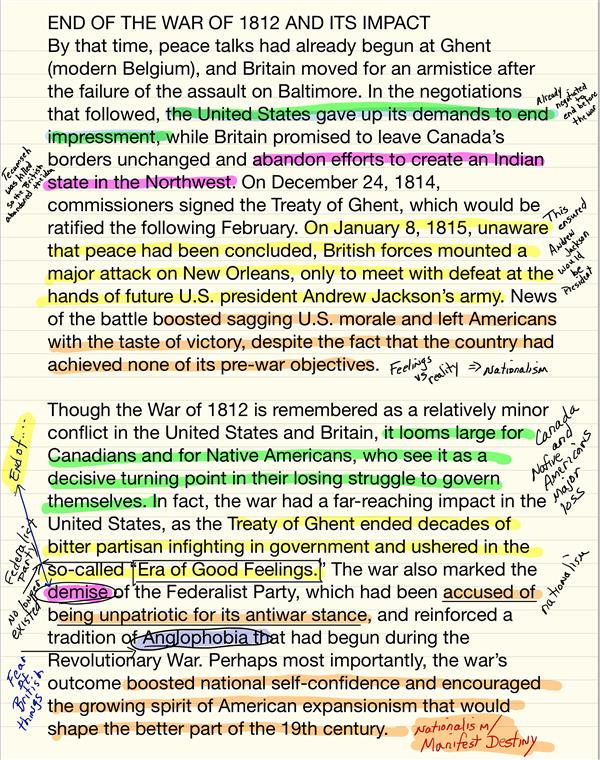 END OF THE WAR OF 1812 AND ITS IMPACT
By that time, peace talks had already begun at Ghent
(modern Belgium), and Britain moved for an armistice after
the failure of the assault on Baltimore. In the negotiations
that followed, the United States gave up its demands to end
impressment, while Britain promised to leave Canada's
borders unchanged and abandon efforts to create an Indian
state in the Northwest. On December 24, 1814,
commissioners signed the Treaty of Ghent, which would be
ratified the following February. On January 8, 1815, unaware
that peace had been concluded, British forces mounted a
major attack on New Orleans, only to meet with defeat at the
hands of future U.S. president Andrew Jackson's army. News
of the battle boosted sagging U.S. morale and left Americans
with the taste of victory, despite the fact that the country had
achieved none of its pre-war objectives.
Already
negotiated
to
end before
the war
Tecumseh
was killed
so the British
abandoned the idea
This
ensured
Andrew
Jackson
would
be
President
Feelings
vs reality ⇒ Nationalism
Though the War of 1812 is remembered as a relatively minor
conflict in the United States and Britain, it looms large for
Canadians and for Native Americans, who see it as a
decisive turning point in their losing struggle to govern
themselves. In fact, the war had a far-reaching impact in the
United States, as the Treaty of Ghent ended decades of
bitter partisan infighting in government and ushered in the
so-called "Era of Good Feelings." The war also marked the
demise of the Federalist Party, which had been accused of
being unpatriotic for its antiwar stance, and reinforced a
tradition of Anglophobia that had begun during the
Revolutionary War. Perhaps most importantly, the war's
outcome boosted national self-confidence and encouraged
the growing spirit of American expansionism that would
shape the better part of the 19th century.
Canada
and
Native Americans
Major
loss
End of....
Federalist
Party
No longer
existed
nationalism
Fear
of
British
things
Nationalism/
Manifest Destiny